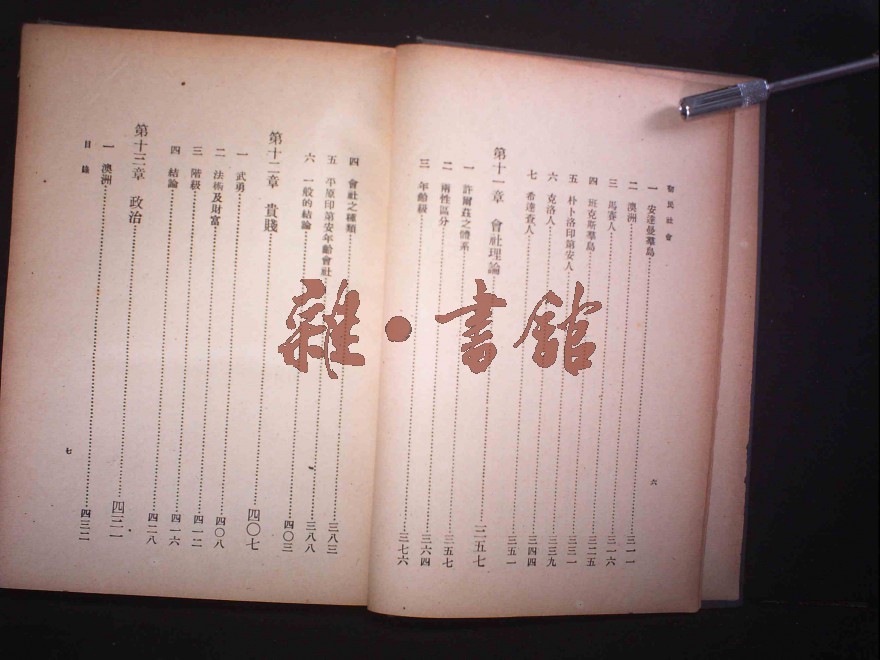 初民社會
一 安達曼羣島 三一一
二 澳洲 三一一
三 馬賽人 三一六
四 班克斯羣島 三二五
五 朴卜洛印第安人 三三一
六 克洛人 三三九
七 希達查人 三四四
第十一章 會社理論 三五七
一 許爾茲之體系 三五七
二 兩性區分 三六四
三 年齡級 三七六
六
四 會社之種類 三八三
五 平原印第安年齡會社 三八八
六 一般的結論 四〇三
第十二章 貴賤 四〇七
一 武勇 四〇八
二 法術及財富 四一二
三 階級 四一六
四 結論 四二八
第十三章 政治 四三一
一 澳洲 四三二
目錄
七
雜·書館